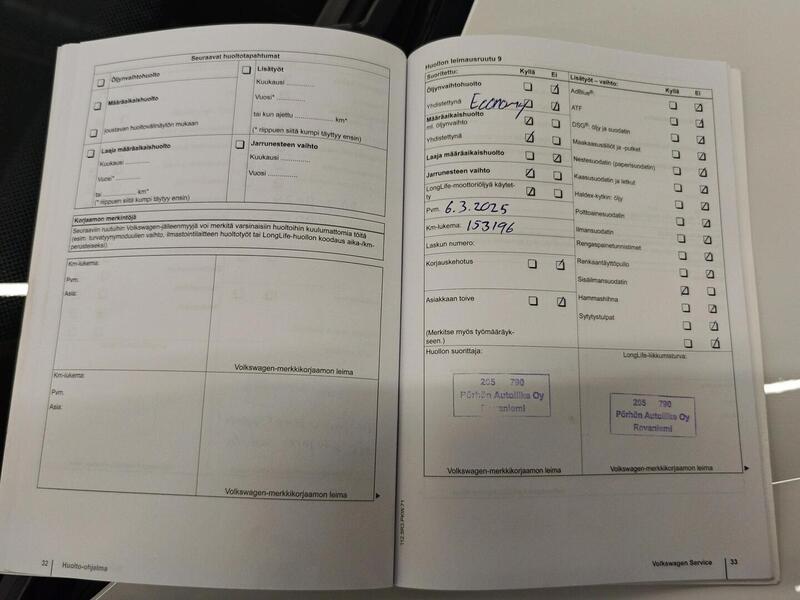 Seuraavat huoltotapahtumat
Öljynvaihtohuolto
Määräaikaishuolto
joustavan huoltovälinäytön mukaan
Lisätyöt
Kuukausi ..............
Vuosi* ..............
tai kun ajettu .............. km*
(* riippuen siitä kumpi täyttyy ensin)
Laaja määräaikaishuolto
Kuukausi ..............
Vuosi* ..............
tai .............. km*
(* riippuen siitä kumpi täyttyy ensin)
Jarrunesteen vaihto
Kuukausi ..............
Vuosi ..............
Korjaamon merkintöjä
Seuraaviin ruutuihin Volkswagen-jälleenmyyjä voi merkitä varsinaisiin huoltoihin kuulumattomia töitä
(esim. turvatyynymoduulien vaihto, ilmastointilaitteen huoltotyöt tai LongLife-huollon koodaus aika-/km-
perusteiseksi).
Km-lukema:
Pvm.
Asia:
Volkswagen-merkkikorjaamon leima
Km-lukema:
Pvm.
Asia:
Volkswagen-merkkikorjaamon leima
32 Huolto-ohjelma
Huollon leimausruutu 9
Suoritettu: Kyllä Ei
Öljynvaihtohuolto
Yhdistettynä Economy
Määräaikaishuolto
ml. öljynvaihto
Yhdistettynä
Laaja määräaikaishuolto
Jarrunesteen vaihto
LongLife-moottoriöljyä käytet-
ty
Pvm. 6.3.2025
Km-lukema: 153196
Laskun numero:
Korjauskehotus
Asiakkaan toive
(Merkitse myös työmääräyk-
seen.)
Lisätyöt – vaihto: Kyllä Ei
AdBlue®:
ATF
DSG®: öljy ja suodatin
Maakaasusäiliöt ja -putket
Nestesuodatin (paperisuodatin)
Kaasusuodatin ja letkut
Haldex-kytkin: öljy
Polttoainesuodatin
Ilmansuodatin
Rengaspainetunnistimet
Renkaantäyttöpullo
Sisäilmansuodatin
Hammashihna
Sytytystulpat
Huollon suorittaja:
205 790
Pörhön Autoliike Oy
Rovaniemi
Volkswagen-merkkikorjaamon leima
LongLife-liikkumisturva:
205 790
Pörhön Autoliike Oy
Rovaniemi
Volkswagen-merkkikorjaamon leima
112.5R3.PKW.71
Volkswagen Service 33